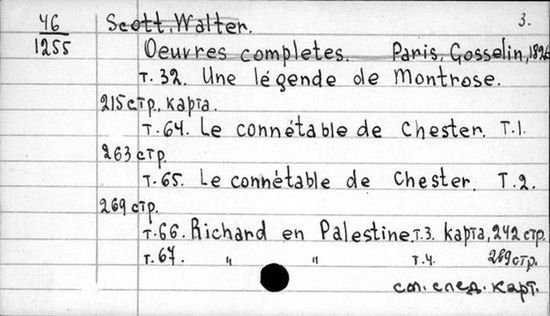 46 Scott, Walter. 3.
1255 Oeuvres completes. Paris, Gosselin, 1826
т. 32. Une légende de Montrose.
215 стр., карта.
т. 64. Le connétable de Chester. Т. 1.
263 стр.
т. 65. Le connétable de Chester. Т. 2.
269 стр.
т. 66. Richard en Palestine. т. 3. карта, 242 стр.
т. 67. " " т. 4. 289 стр.
см. след. карт.